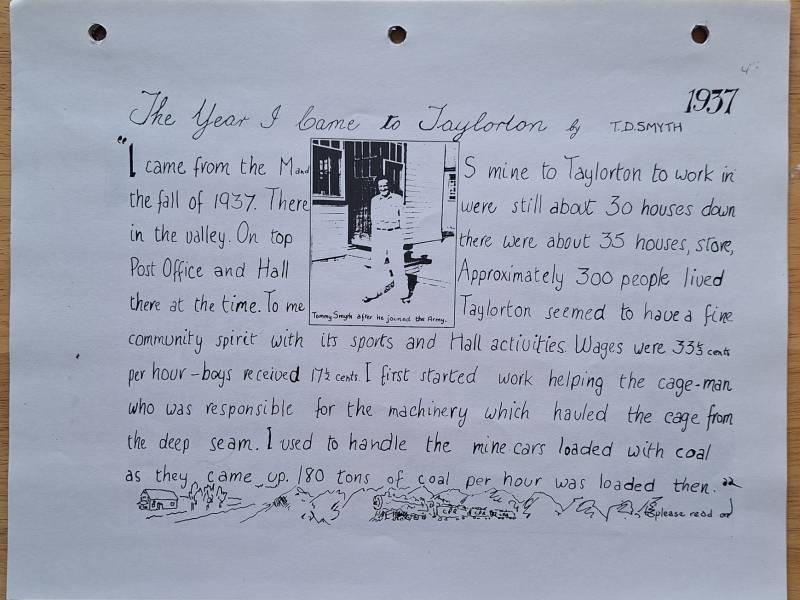 1937
The Year I Came to Taylorton by T.D.SMYTH
"I came from the M and S mine to Taylorton to work in
the fall of 1937. There were still about 30 houses down
in the valley. On top there were about 35 houses, store,
Post Office and Hall Approximately 300 people lived
there at the time. To me Taylorton seemed to have a fine
Tommy Smyth after he joined the Army.
community spirit with its sports and Hall activities. Wages were 33⅓ cents
per hour - boys received 17½ cents. I first started work helping the cage-man
who was responsible for the machinery which hauled the cage from
the deep seam. I used to handle the mine cars loaded with coal
as they came up. 180 tons of coal per hour was loaded then."
please read on